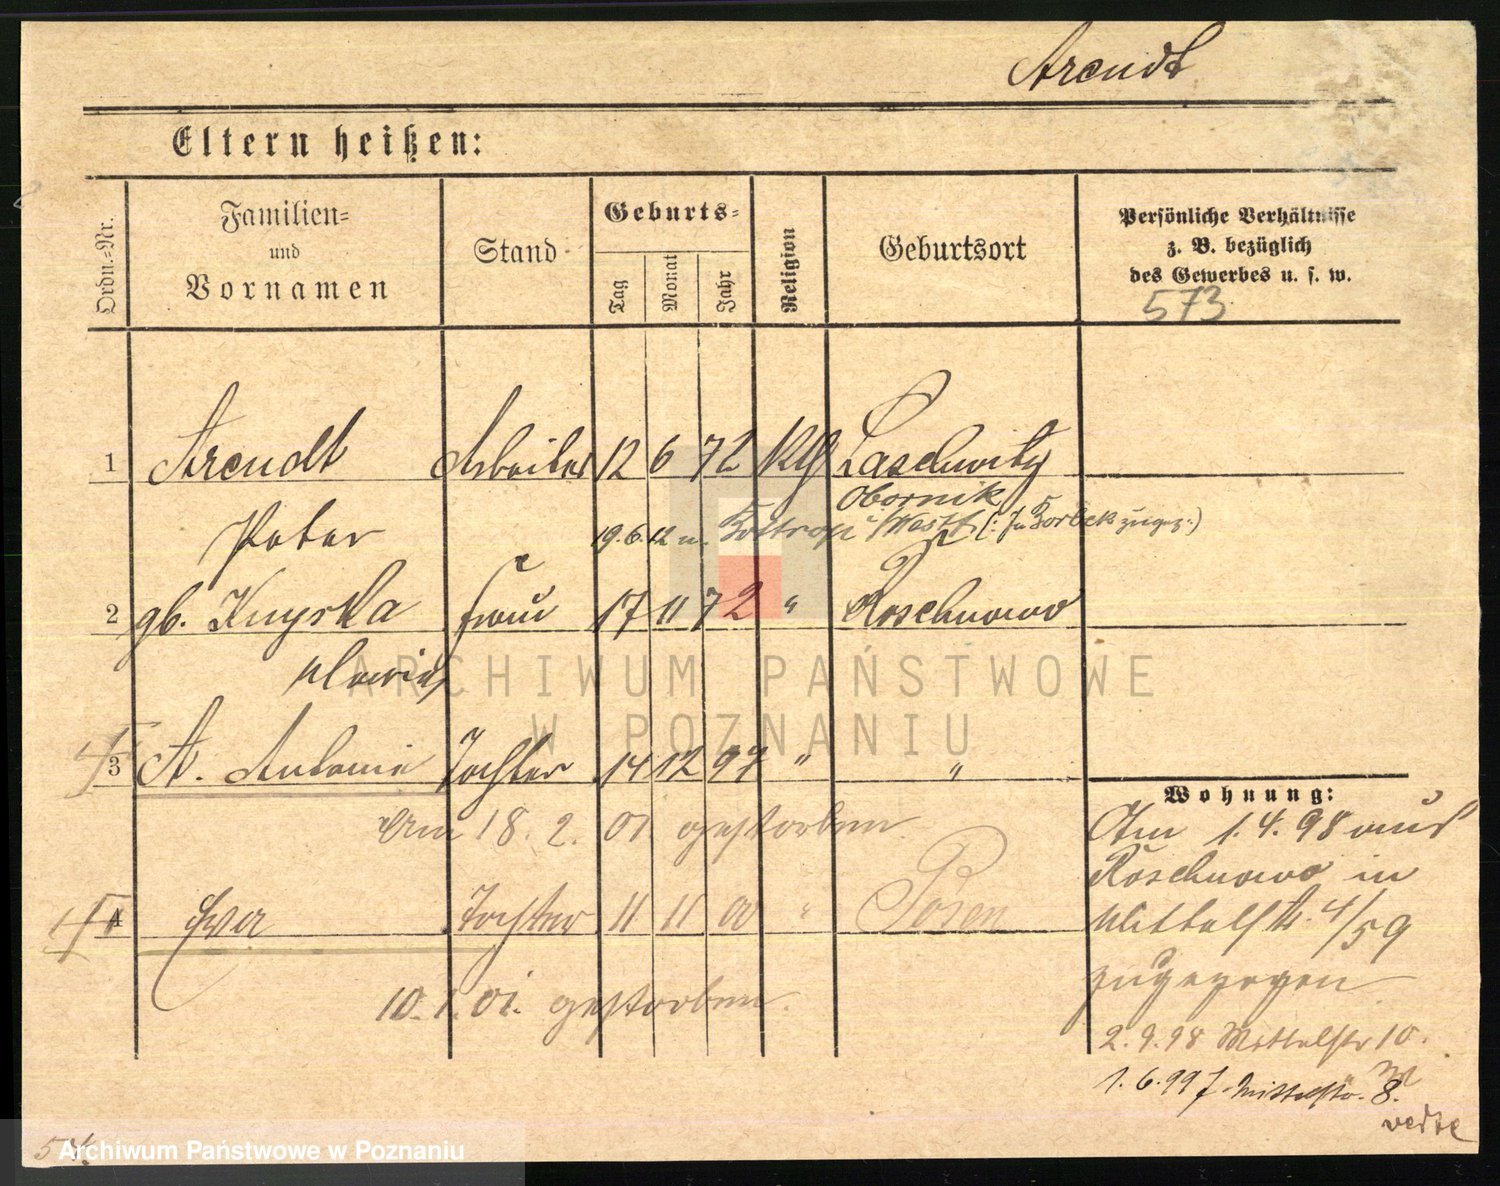 Arendt
Eltern heißen:
Ordn.-Nr.
Familien-
und
Vornamen
Stand
Geburts-
Tag
Monat
Jahr
Religion
Geburtsort
Persönliche Verhältnisse
z. B. bezüglich
des Gewerbes u. s. w.
573
1 Arendt Arbeiter 12 6 72 Laschwitz
Obornik
Peter 19.6.12 n. Bottrop Westf (: In Borbeck zugez:)
2 gb. Knyska Frau 17 11 72 " Roschnowo
Maria
3 A. Antonie Tochter 14 12 97 " "
Am 18. 2. 01 gestorben.
4 Eva Tochter 11 11 00 " Posen
10. 1. 01. gestorben.
Wohnung:
Am 1.4.98 aus
Roschnowo in
Mittelstr. 4/59
zugezogen
2.9.98 Mittelstr 10.
1.6.99 Mittelstr. 8.
verte
ARCHIWUM PAŃSTWOWE
W POZNANIU
Archiwum Państwowe w Poznaniu